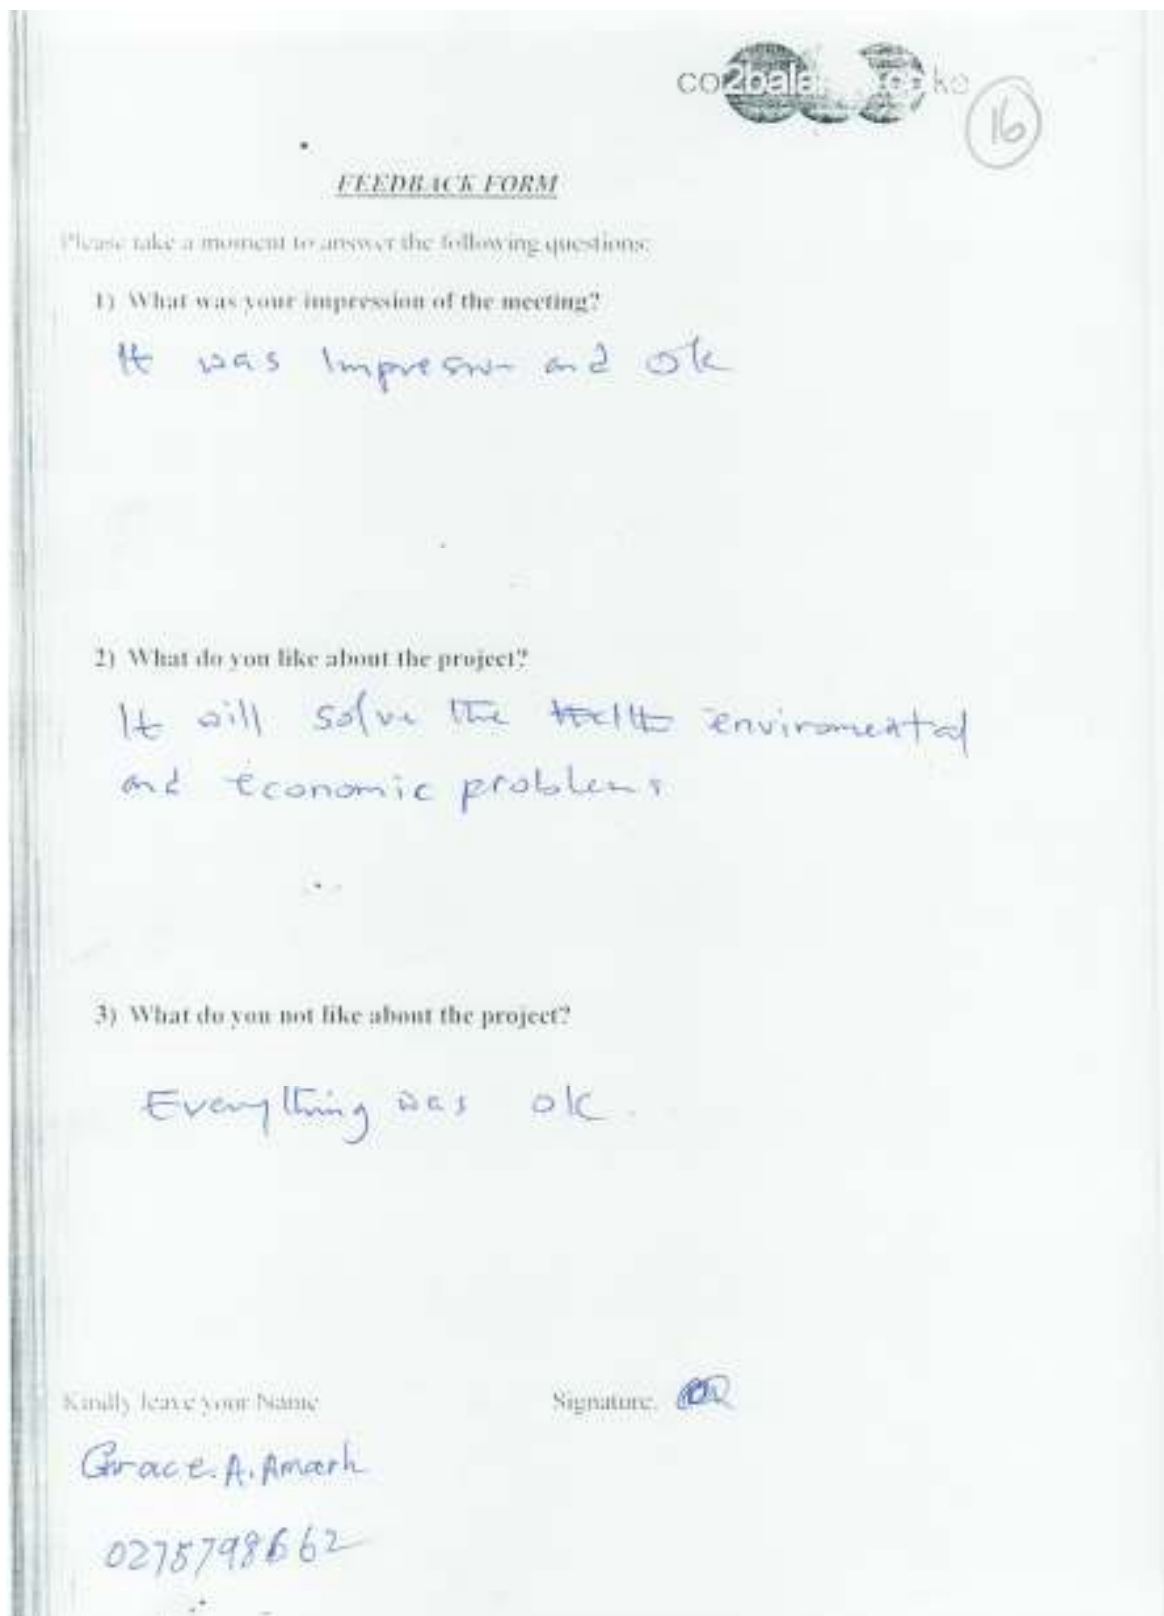 co2balance.co.ke
16
FEEDBACK FORM
Please take a moment to answer the following questions:
1) What was your impression of the meeting?
It was and ok
2) What do you like about the project?
It will solve the enviromental
and economic problems
3) What do you not like about the project?
Everything was ok.
Kindly leave your Name
Signature.
Grace. A. Amarh
0275798662